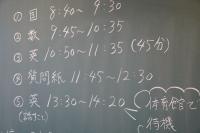 ① 国 8:40~ 9:30
② 数 9:45~ 10:35
③ 英 10:50~ 11:35 (45分)
④ 質問紙 11:45~12:30
⑤ 英 13:30~14:20
(話すこと)
体育館で
待機